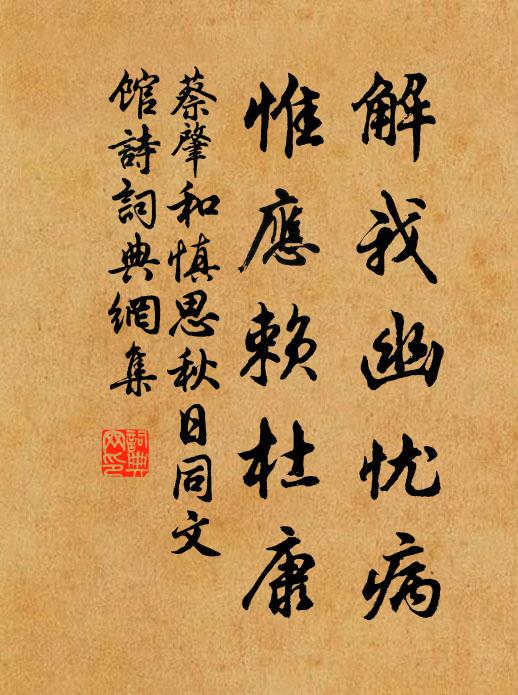 解我幽忧病
惟應赖杜康
蔡肇和慎思秋日同文
館詩詞典網集
詞典网印